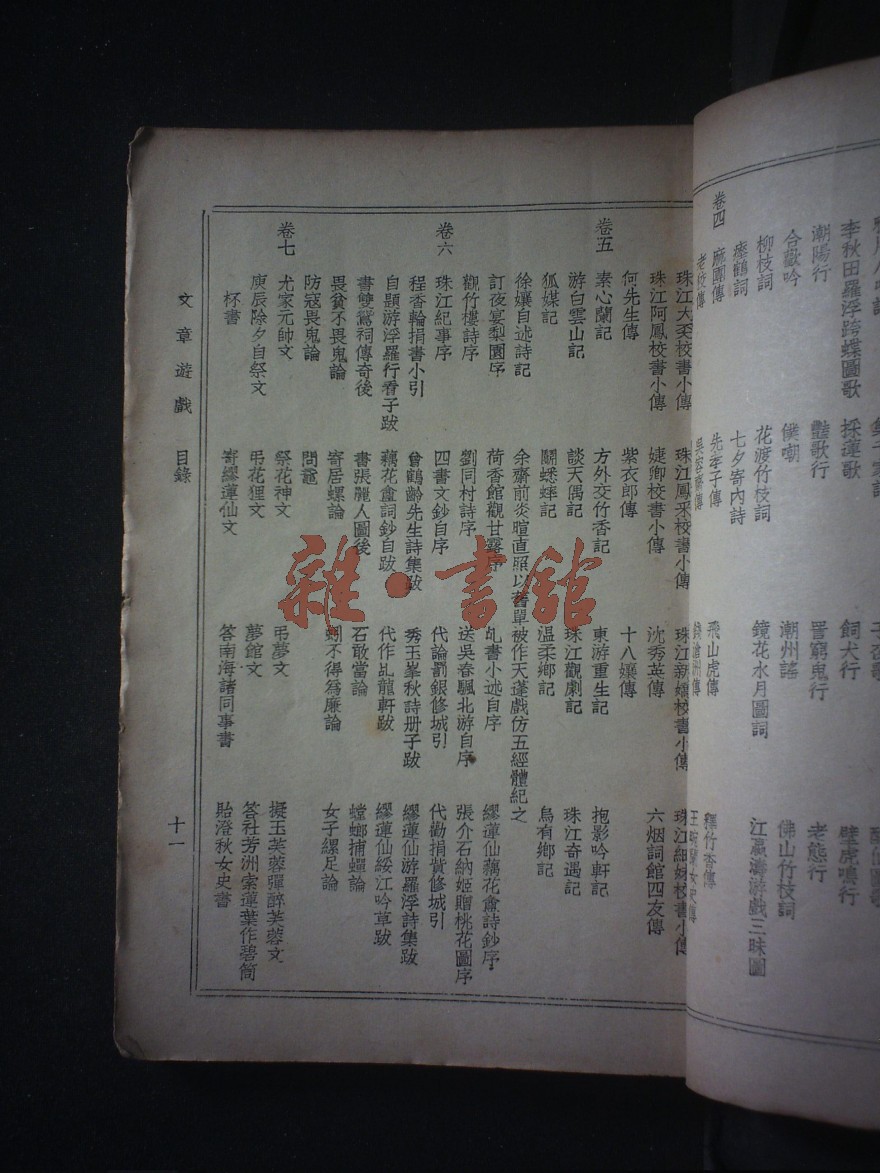 潮陽行
合歡吟
柳枝詞 花渡竹枝詞 鏡花水月圖詞
瘞鶴詞 七夕寄內詩
卷四
麻團傳 先李子傳 飛山虎傳 釋竹香傳
珠江大奀校書小傳 珠江鳳釆校書小傳 珠江新嬌校書小傳 珠江細妹校書小傳
珠江阿鳳校書小傳 婕卿校書小傳 沈秀英傳 六烟詞館四友傳
何先生傳 紫衣郎傳 十八孃傳
卷五
素心蘭記 方外交竹香記 東游重生記 抱影吟軒記
游白雲山記 談天偶記 珠江觀劇記 珠江奇遇記
狐媒記 鬭蟋蟀記 温柔鄉記 烏有鄉記
徐孃自述詩記 余齋前炎暄直照以舊單被作天蓬戲仿五經體紀之
訂夜宴梨園序 荷香館觀甘露序 乩書小述自序 繆蓮仙藕花盦詩鈔序
卷六
觀竹樓詩序 劉同村詩序 送吳春颿北游自序 張介石納姬贈桃花圖序
珠江紀事序 四書文鈔自序 代論罰銀修城引 代勸捐貲修城引
程香輪捐書小引 曾鶴齡先生詩集跋 秀玉峯秋詩册子跋 繆蓮仙游羅浮詩集跋
自題游浮羅行看子跋 藕花盦詞鈔自跋 代作乩龍軒跋 繆蓮仙綏江吟草跋
書雙鴛祠傳奇後 書張麗人圖後 石敢當論 螳螂捕蟬論
畏貧不畏鬼論 寄居螺論 蚓不得爲廉論 女子纏足論
防寇畏鬼論 問鼋
卷七
尤家元帥文 祭花神文 弔夢文 擬玉芙蓉彈醉芙蓉文
庚辰除夕自祭文 弔花狸文 夢館文 答社芳洲索蓮葉作碧筒
杯書 寄繆蓮仙文 答南海諸同事書 貽澄秋女史書
文章遊戲 目錄 十一
李秋田羅浮跨蝶圖歌 採蓮歌 飼犬行
豔歌行 詈窮鬼行 老態行
僕嘲 潮州謠 佛山竹枝詞
雜·書館